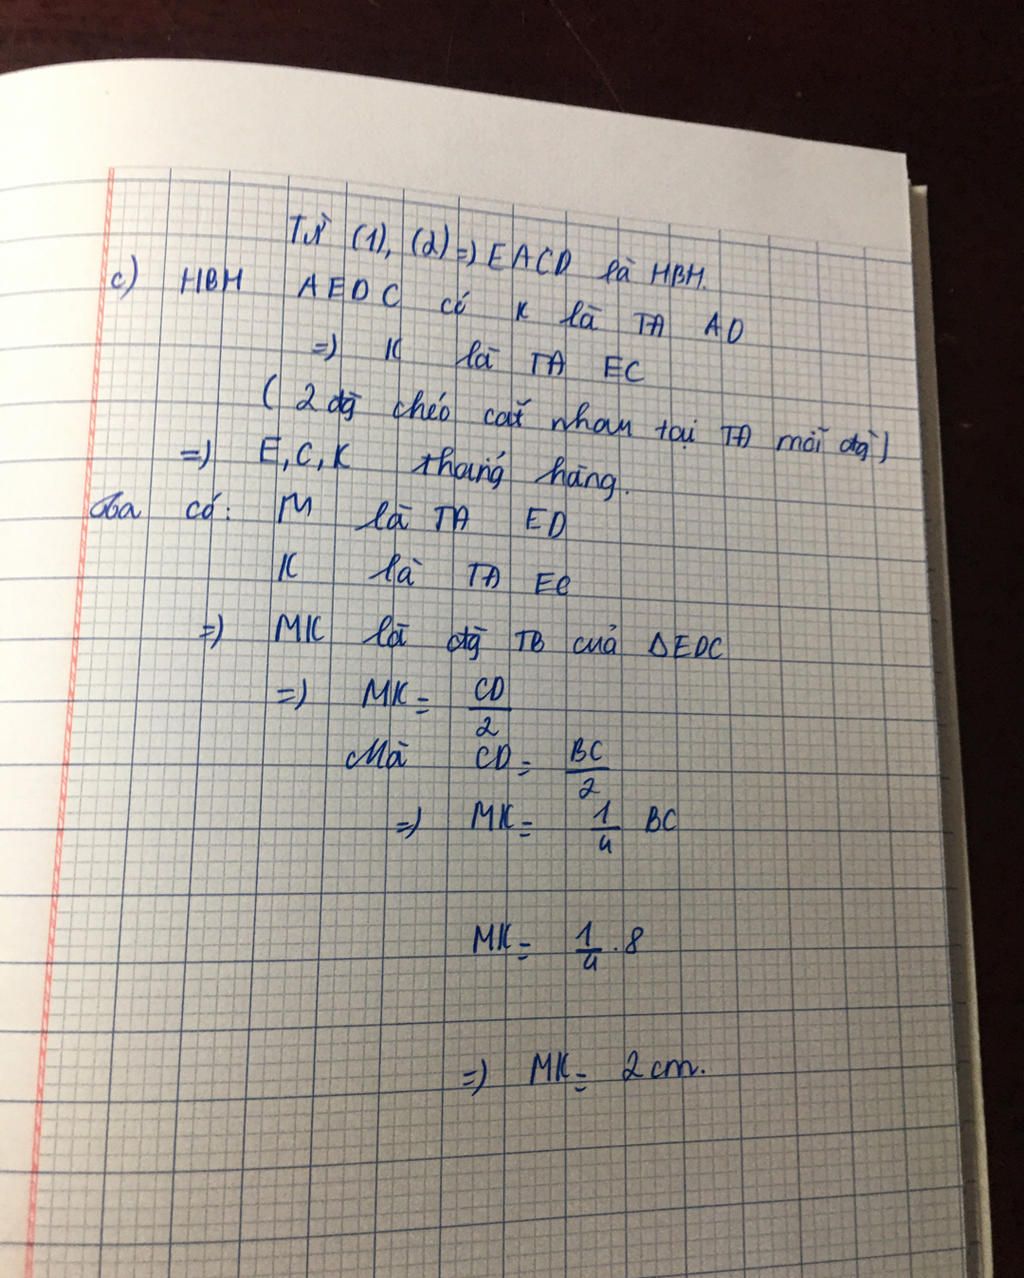 Từ (1), (2) => EACD là HBH.
c) HBH AEDC có K là TĐ AD
=> K là TĐ EC
( 2 đg chéo cắt nhau tại TĐ mỗi đg )
=> E, C, K thẳng hàng.
Ta có: M là TĐ ED
K là TĐ EC
=> MK là đg TB của ΔEDC
=> MK = CD/2
Mà CD = BC/2
=> MK = 1/4 BC
MK = 1/4 . 8
=> MK = 2 cm.